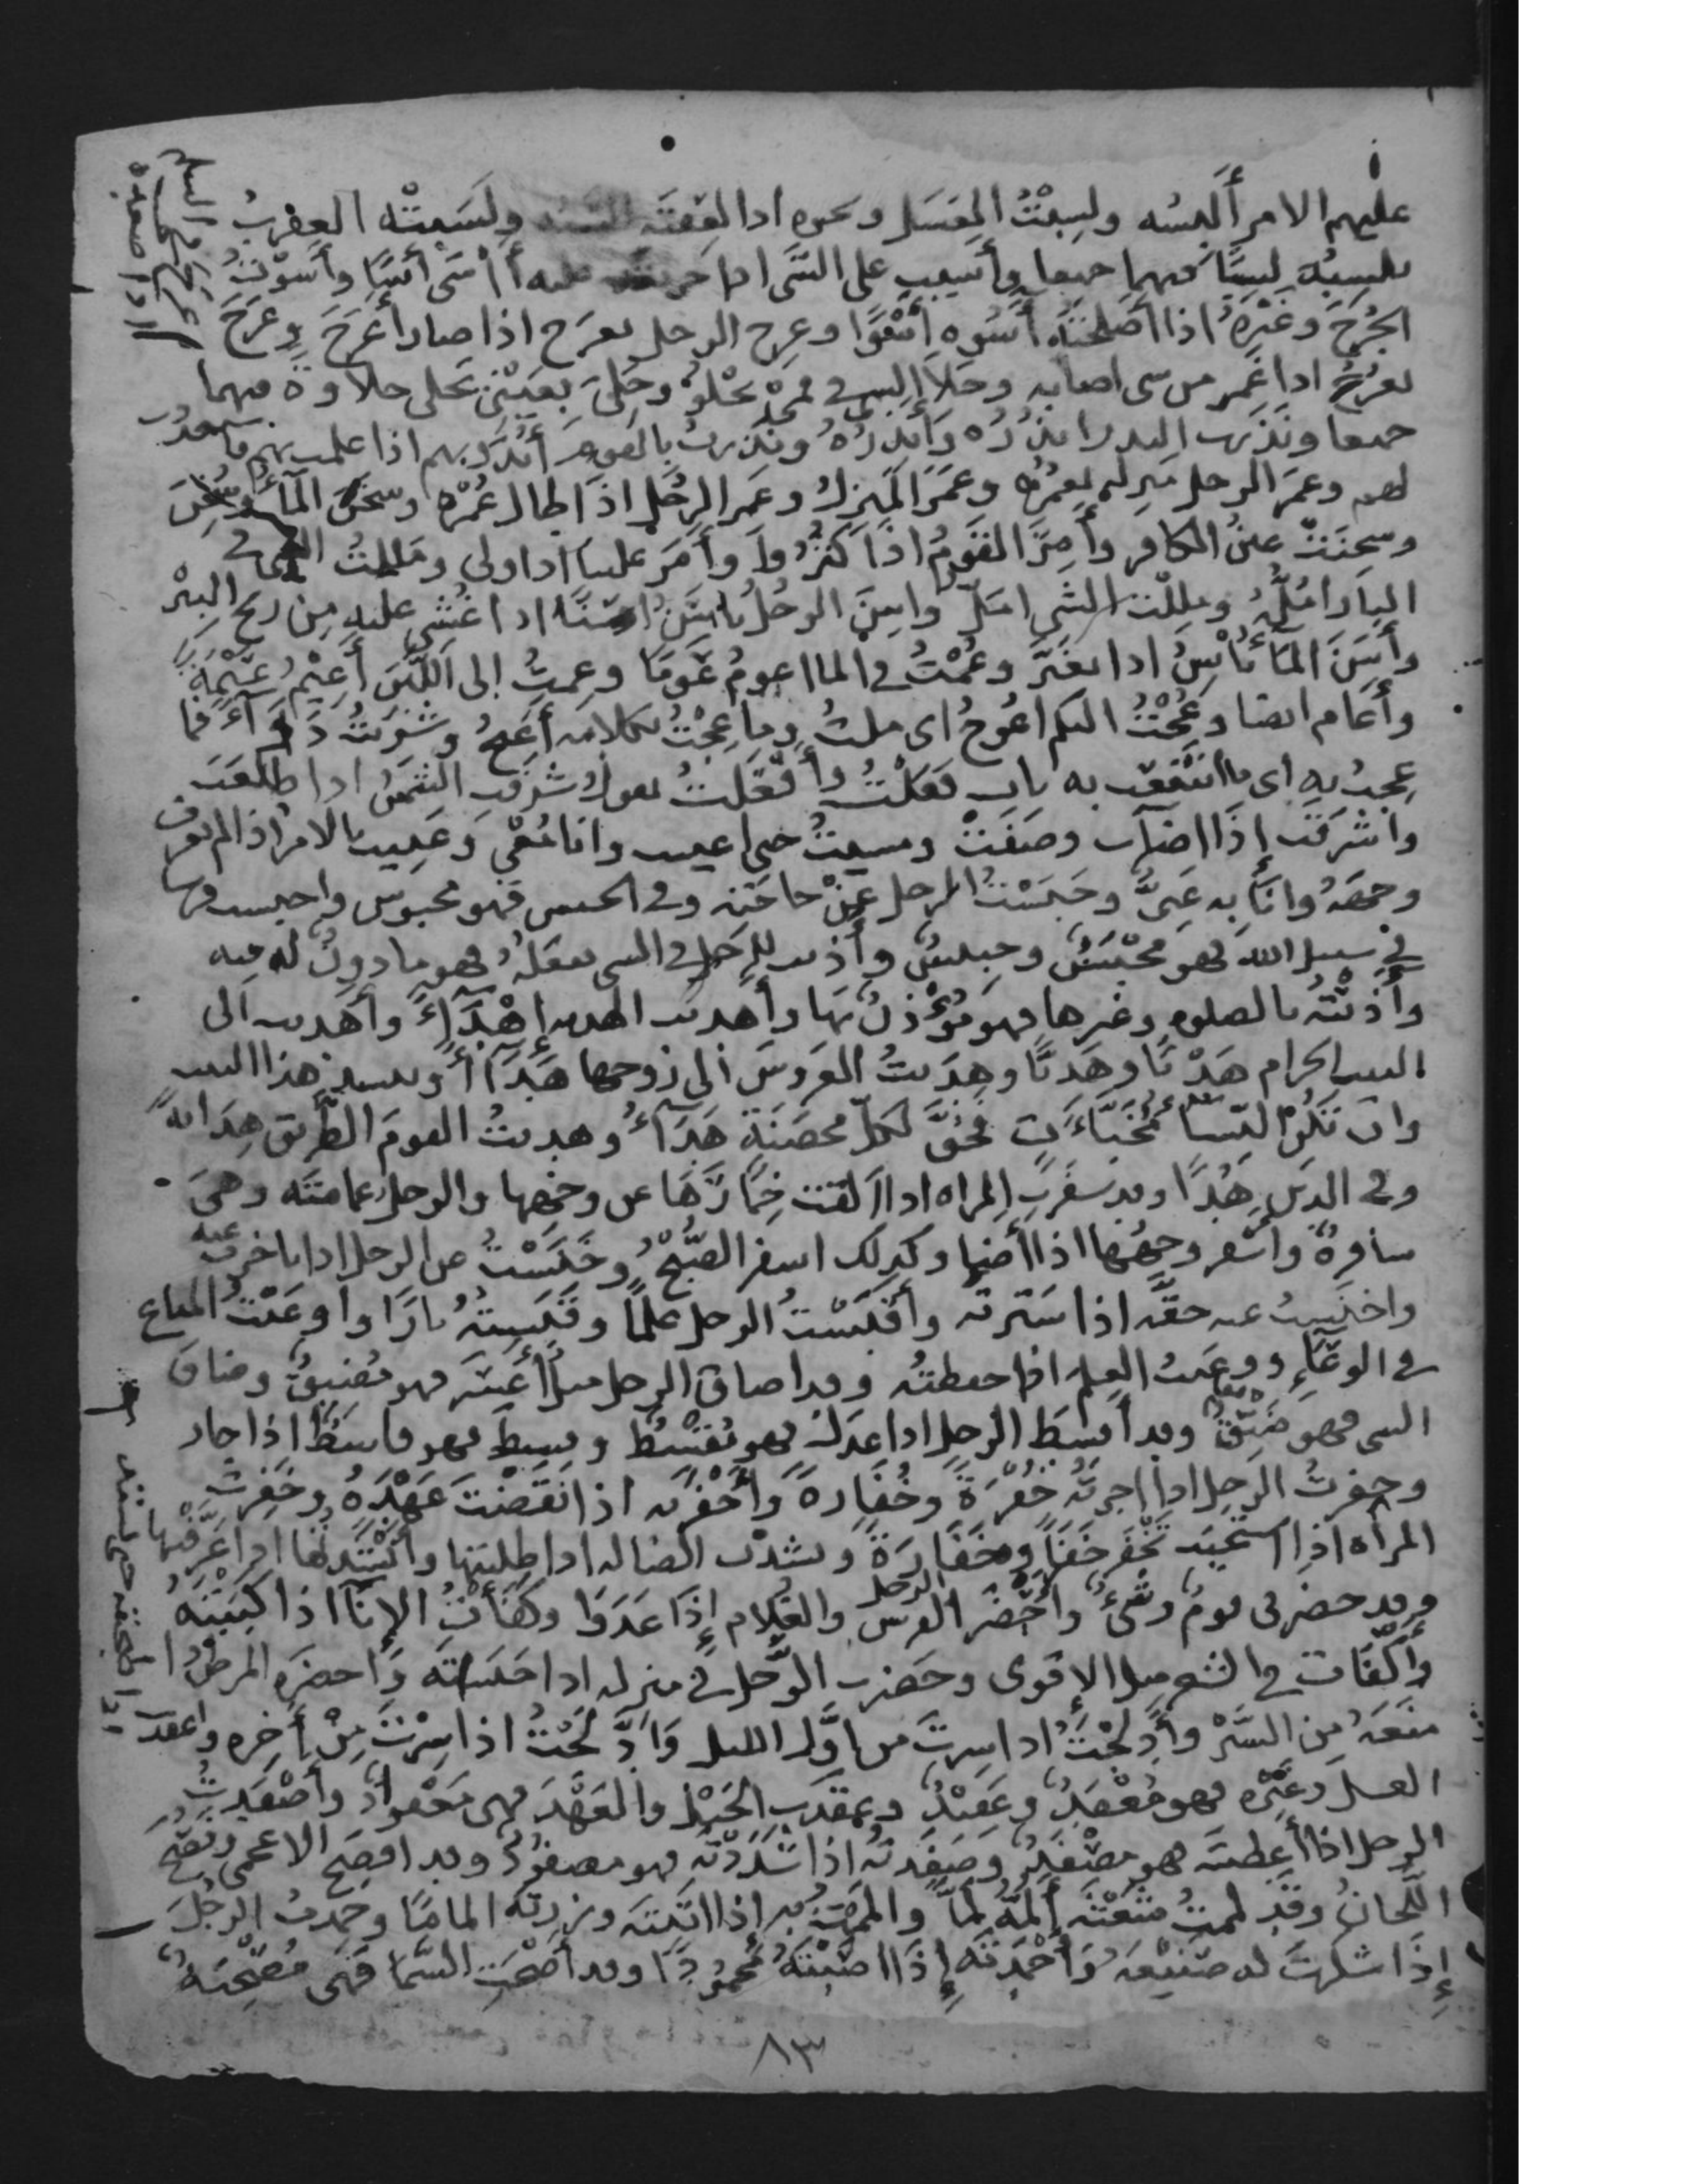 عليهم الامر ألبسه ولسبت العسل ونحوه اذا لعقته ولسبته العقرب
تلسبه لسبا فيهما جميعا وأسيت على الشى اذا حزنت عليه أأسى أسًا وأسوت
الجرح وغيره اذا أصلحته أسوه أسوًا وعرج الرجل يعرج اذا صار أعرج وعرج
يعرج اذا غمز من شى اصابه وحلا الشى فى فمى يحلو وحلى بعينى يحلى حلاوة فيهما
جميعا ونذرت النذر انذره وأنذره ونذرت بالقوم أنذر بهم اذا علمت بهم فاستعددت
لهم وعمر الرجل منزله يعمره وعمر المنزل وعمر الرجل اذا طال عمره وسخن الماء وسخن
وسخنت عين الكافر وأمر القوم اذا كثروا وأمر علينا اذا ولى ومللت الشى فى
النار أمله ومللت الشى امل واسن الرجل ياسن اسنا اذا غشى عليه من ريح البئر
وأسن الماء ياسن اذا تغير وعمت فى الما اعوم عوما وعمت إلى اللبن أعيم عيمة
وأعام ايضا وعجت اليكم اعوج اى ملت وما عجت بكلامه أعيج وشربت دواء فما
عجت به اى ما انتفعت به باب فعلت وأفعلت تقول شرقت الشمس اذا طلعت
واشرقت إذا اضات وصفت ومشيت حتى اعييت وانا معى وعييت بالامر اذا لم تعرف
وجهه وانا به عيى وحبست الرجل عن حاجته وفى الحبس فهو محبوس واحبست فرسا
فى سبيل الله فهو محبس وحبيس وأذنت للرجل فى الشى يفعله فهو ماذون له فيه
وأذنته بالصلوه وغيرها فهو مؤذن بها وأهديت الهديه إهداء وأهديت الى
البيت الحرام هديا وهديا وهديت العروس الى زوجها هداء وينشد هذا البيت
وان تكن النساء مخبآت فحق لكل محصنة هداء وهديت القوم الطريق هدايه
وفى الدين هدا وقد سفرت المراه اذا القت خمارها عن وجهها والرجل عمامته وهى
سافرة واسفر وجهها اذا أضا وكذلك اسفر الصبح وخنست عن الرجل اذا تاخرت عنه
واخنست عنه حقه اذا سترته وأقبست الرجل علما وقبسته نارا واوعيت المتاع
فى الوعاء ووعيت العلم اذا حفظته وقد اضاق الرجل فهو مضيق وضاق
الشى فهو ضيق وقد أقسط الرجل اذا عدل فهو مقسط وقسط فهو قاسط اذا جار
وخفرت الرجل اذا اجرته خفرة وخفارة وأخفرته اذا نقضت عهده وخفرت
المرأه اذا استحيت تخفر خفرا وخفارة ونشدت الضاله اذا طلبتها وأنشدتها اذا عرفتها
وقد حضرنى قوم وشىء وأحضر الفرس الرجل والغلام إذا عدوا وكفأت الإنا اذا كببته
وأكفات فى الشعر مثل الإقوى وحضرت الرجل فى منزله
منعه من السير وأدلجت اذا سرت من اول الليل وادلجت اذا سرت من أخره واعقدت
العسل وغيره فهو معقد وعقيد وعقدت الخيط والعهد فهى معقود وأصفدت
الرجل اذا أعطيته فهو مصفد وصفدته اذا شددته فهو مصفود وقد افصح الاعجمى وفصح
اللحان وقد لممت شعثه ألمه لما والممت به إذا اتيته وزرته الماما وحمدت الرجل
إذا شكرت له صنيعه وأحمدته إذا اصبته محمودا وقد أصحت السما فهى مصحيه
٨٣